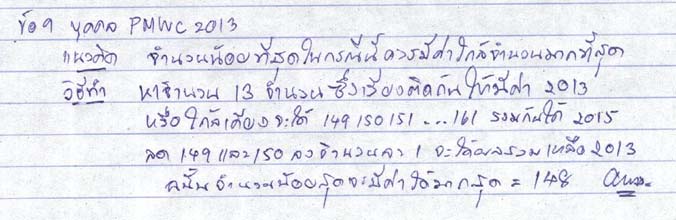 ข้อ 9 บุคคล PMWC 2013
แนวคิด จำนวนน้อยที่สุดในกรณีนี้ควรมีค่าใกล้จำนวนมากที่สุด
วิธีทำ หาจำนวน 13 จำนวน ซึ่งเรียงติดกันให้มีค่า 2013
หรือใกล้เคียงจะได้ 149 150 151 ... 161 รวมกันได้ 2015
ลด 149 และ 150 ลงจำนวนละ 1 จะได้ผลรวมเหลือ 2013
ฉนั้นจำนวนน้อยสุดจะมีค่าได้มากสุด = 148 ตอบ